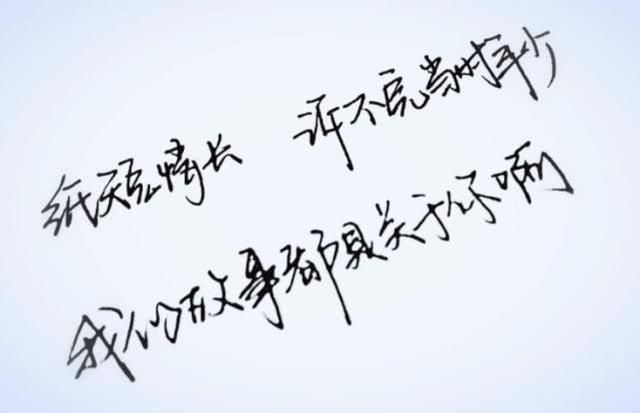 纸短情长 诉不完当时年少
我的故事都是关于你啊